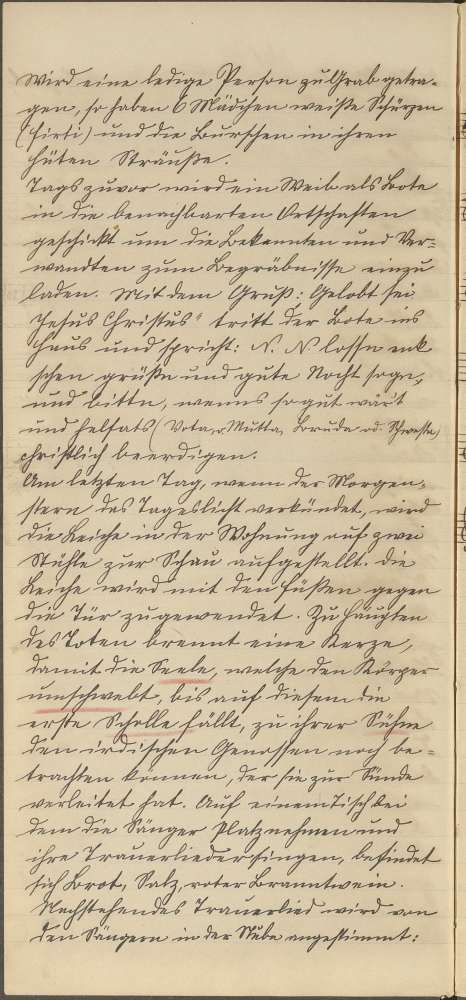 Wird eine ledige Person zu Grab getra-
gen, so haben 6 Mädchen weiße Schürzen
(Firti) und die Burschen in ihren
Hüten Sträuße.
Tags zuvor wird ein Weib als Bote
in die benachbarten Ortschaften
geschickt um die Bekannten und Ver-
wandten zum Begräbnisse einzu
laden. Mit dem Gruß: Gelobt sei
Jesus Christus" tritt der Bote ins
Haus und spricht: N. N. lossn enk
schen grüßn und gute Nocht sogn,
und bittn, wenns so gut wär't
und helfats (Vota, Mutta, Bruda od. Schwesta)
christlich beerdigen.
Am letzten Tag, wenn der Morgen-
stern das Tageslicht verkündet, wird
die Leiche in der Wohnung auf zwei
Stühle zur Schau aufgestellt. Die
Leiche wird mit den Füßen gegen
die Tür zugewendet. Zu Häupten
des Toten brennt eine Kerze,
damit die Seele, welche den Körper
umschwebt, bis auf diesem die
erste Scholle fällt, zu ihrer Sühne
den irdischen Genossen noch be-
trachten können, der sie zur Sünde
verleitet hat. Auf einem Tisch bei
dem die Sänger Platznehmen und
ihre Trauerlieder singen, befindet
sich Brot, Salz, roter Branntwein.
Nachstehendes Trauerlied wird von
den Sängern in der Stube angestimmt: